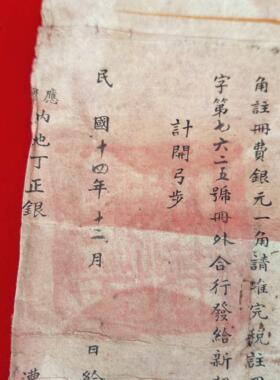 角註冊費銀元一角請准完稅註冊
字第七六二五號冊外合行發給新
計開弓步
民國十四年十二月 日給
應
內地丁正銀
漕